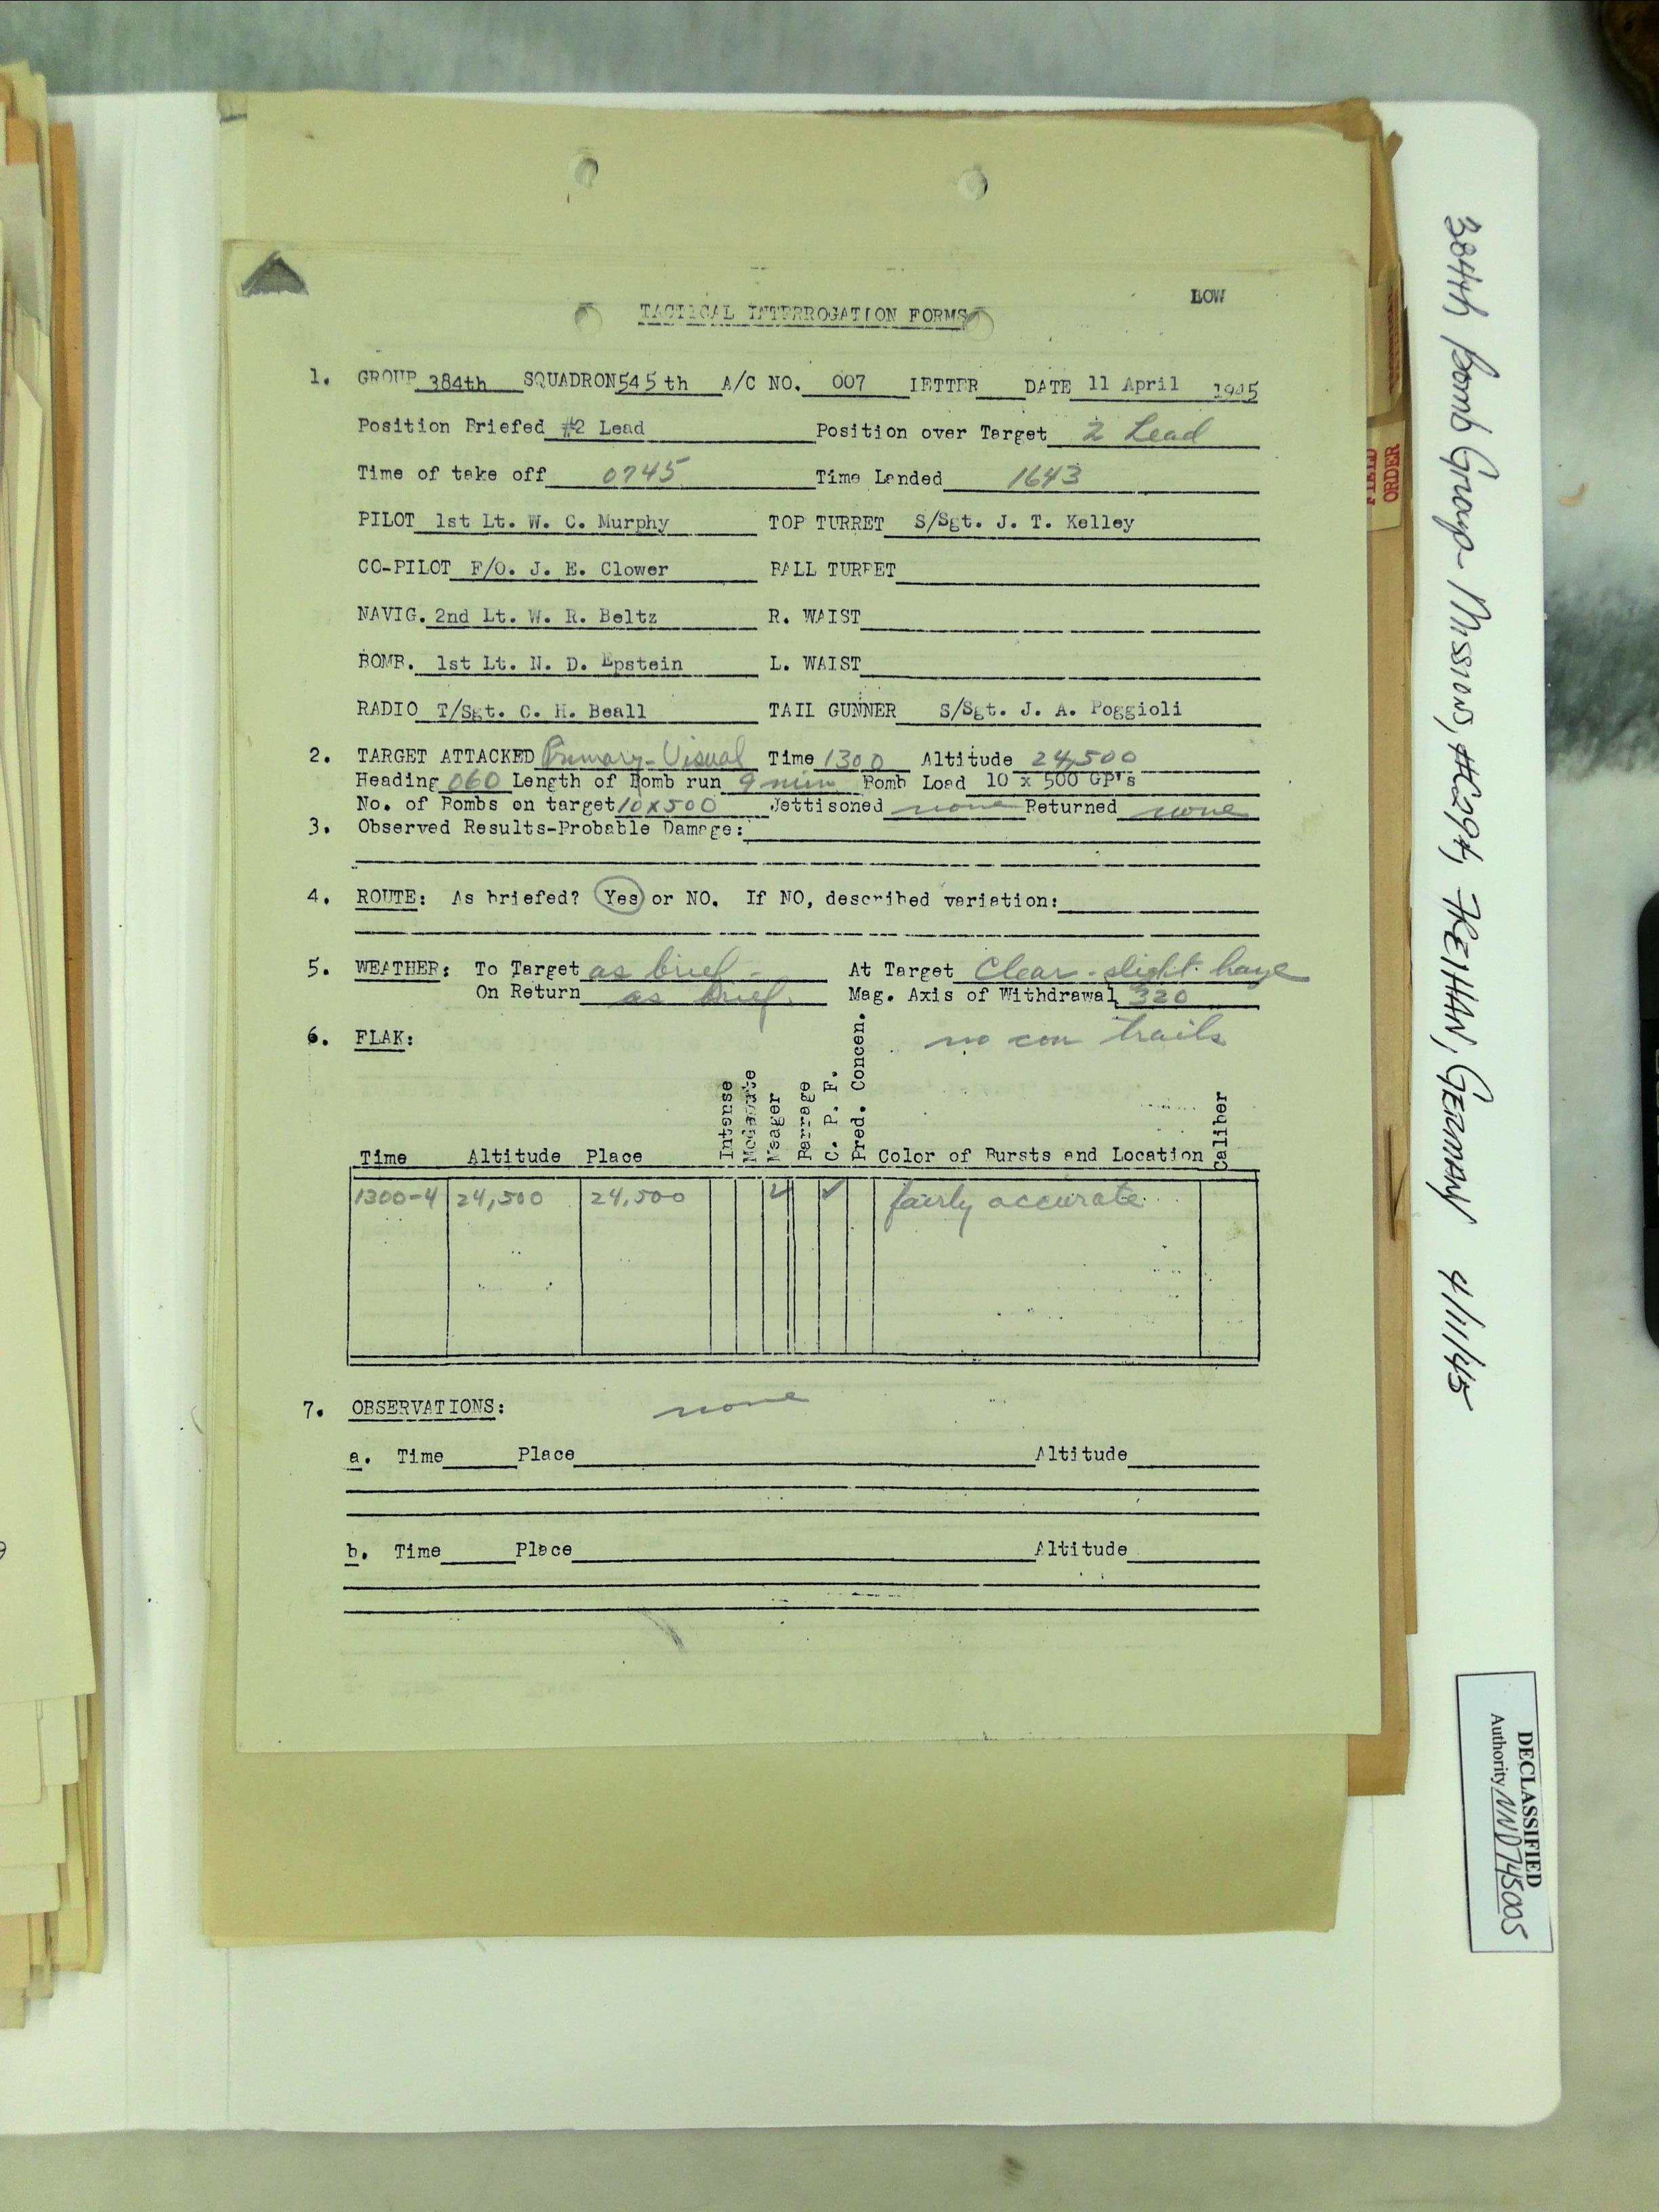 LOW
TACTICAL INTERROGATION FORMS
1. GROUP 384th SQUADRON 545 th A/C NO. 007 LETTER DATE 11 April 1945
Position Briefed #2 Lead Position over Target 2 Lead
Time of take off 0745 Time Landed 1643
PILOT 1st Lt. W. C. Murphy TOP TURRET S/Sgt. J. T. Kelley
CO-PILOT F/O. J. E. Clower BALL TURRET
NAVIG. 2nd Lt. W. R. Beltz R. WAIST
BOMB. 1st Lt. N. D. Epstein L. WAIST
RADIO T/Sgt. C. H. Beall TAIL GUNNER S/Sgt. J. A. Poggioli
2. TARGET ATTACKED Primary-Visual Time 1300 Altitude 24,500
Heading 060 Length of Bomb run 9 min Bomb Load 10 x 500 GP's
No. of Bombs on target 10x500 Jettisoned none Returned none
3. Observed Results-Probable Damage:
4. ROUTE: As briefed? Yes or NO. If NO, described variation:
5. WEATHER: To Target as brief - At Target Clear - slight haze
On Return as brief. Mag. Axis of Withdrawal 320
6. FLAK: no con trails
Time Altitude Place Intense Moderate Meager Barrage C. P. F. Pred. Concen. Color of Bursts and Location Caliber
1300-4 24,500 24,500 ✓ ✓ fairly accurate
7. OBSERVATIONS: none
a. Time Place Altitude
b. Time Place Altitude
FIELD
ORDER
384th Bomb Group - Missions, #294, GERMANY 4/11/45
DECLASSIFIED
Authority NND745005